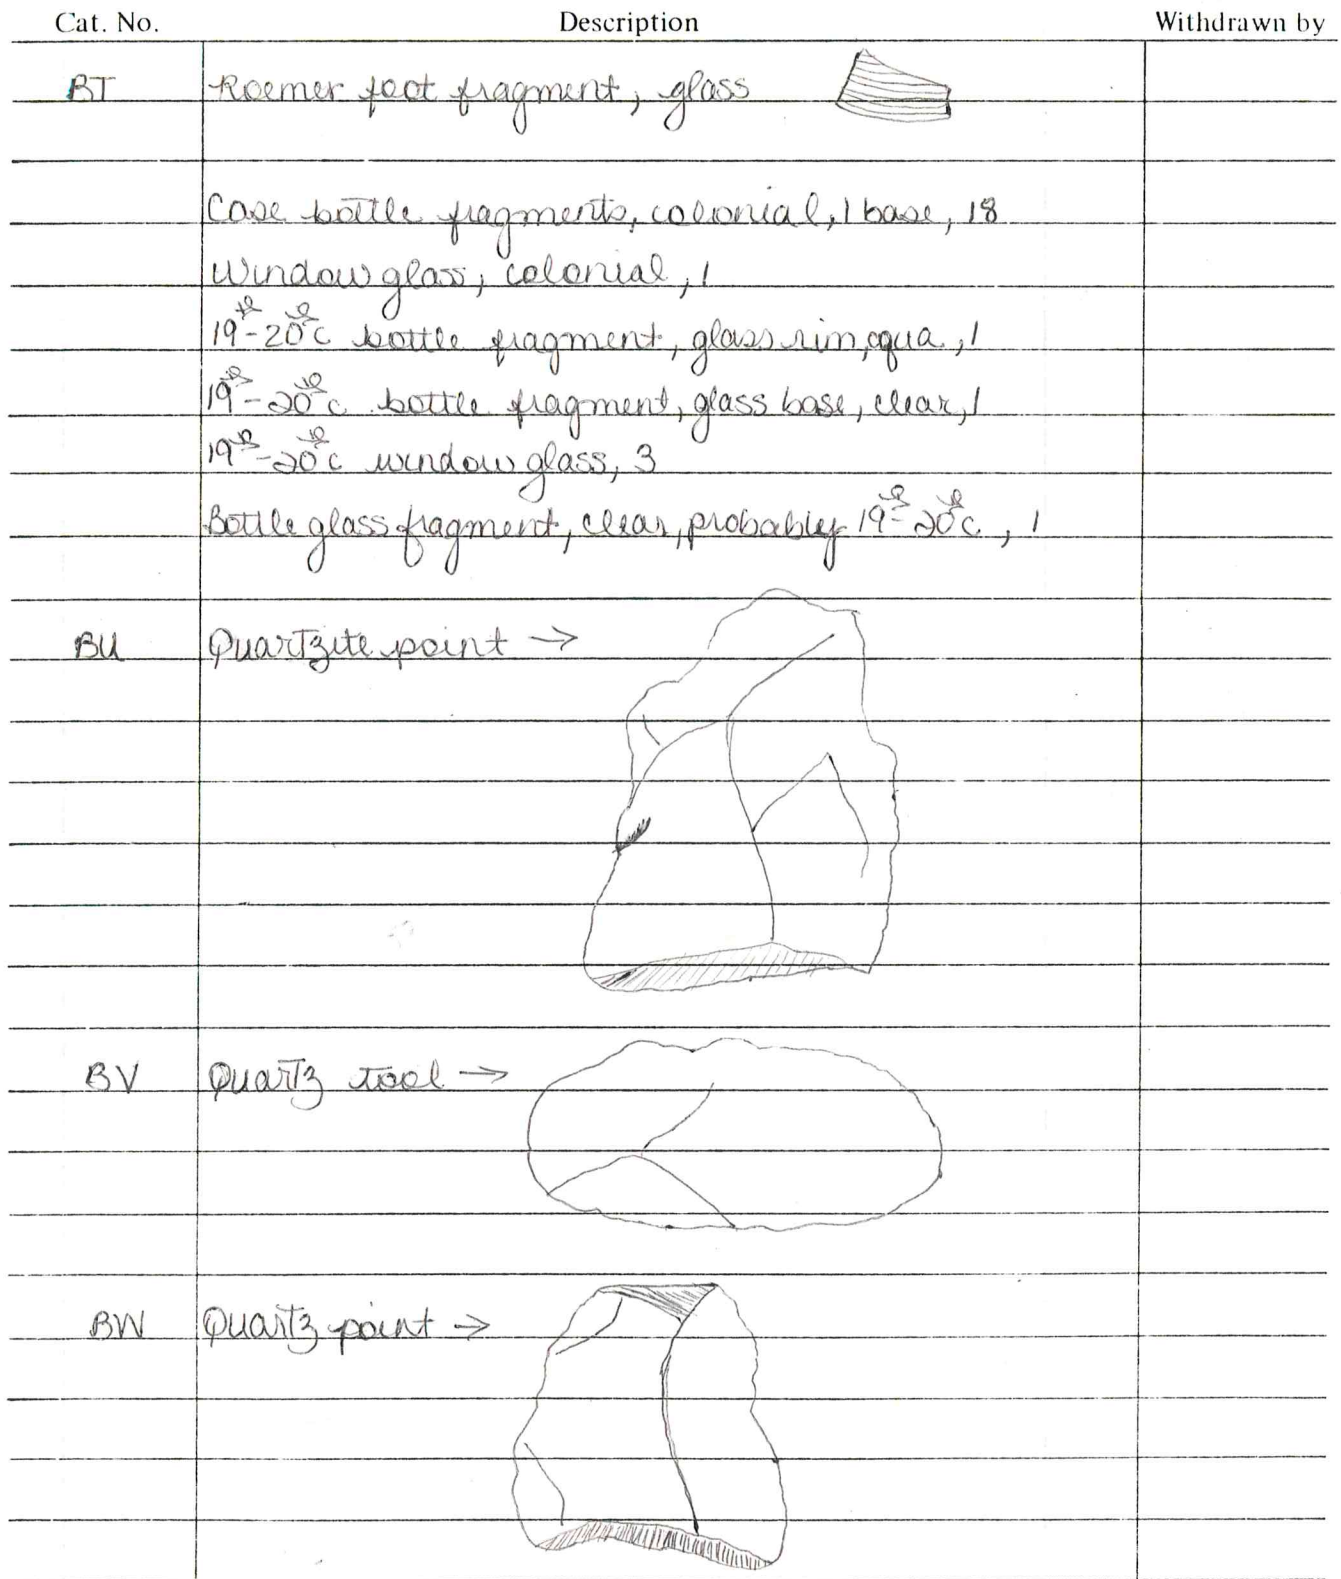 Cat. No. Description Withdrawn by
BT Roemer foot fragment, glass
Case bottle fragments, colonial, 1 base, 18
Window glass, colonial, 1
19th-20th c bottle fragment, glass rim, aqua, 1
19th-20th c bottle fragment, glass base, clear, 1
19th-20th c window glass, 3
Bottle glass fragment, clear, probably 19th-20th c., 1
BU Quartzite point →
BV Quartz tool →
BW Quartz point →